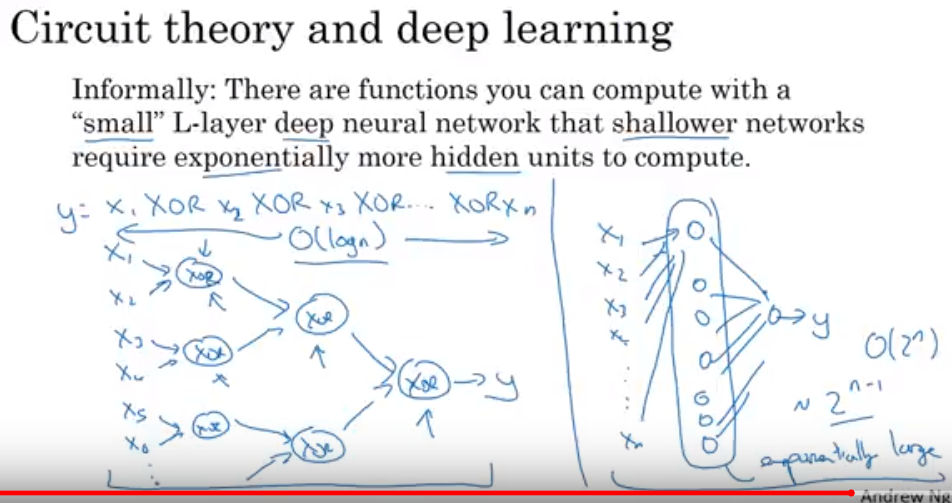 Circuit theory and deep learning
Informally: There are functions you can compute with a
“small” L-layer deep neural network that shallower networks
require exponentially more hidden units to compute.
y= x1 XOR x2 XOR x3 XOR.... XOR xn
O(log n)
x1
x2
XOR
XOR
x3
x4
XOR
XOR
y
x5
x6
XOR
XOR
x1
x2
x3
x4
xn
y
O(2^n)
~ 2^n-1
exponentially large
Andrew Ng